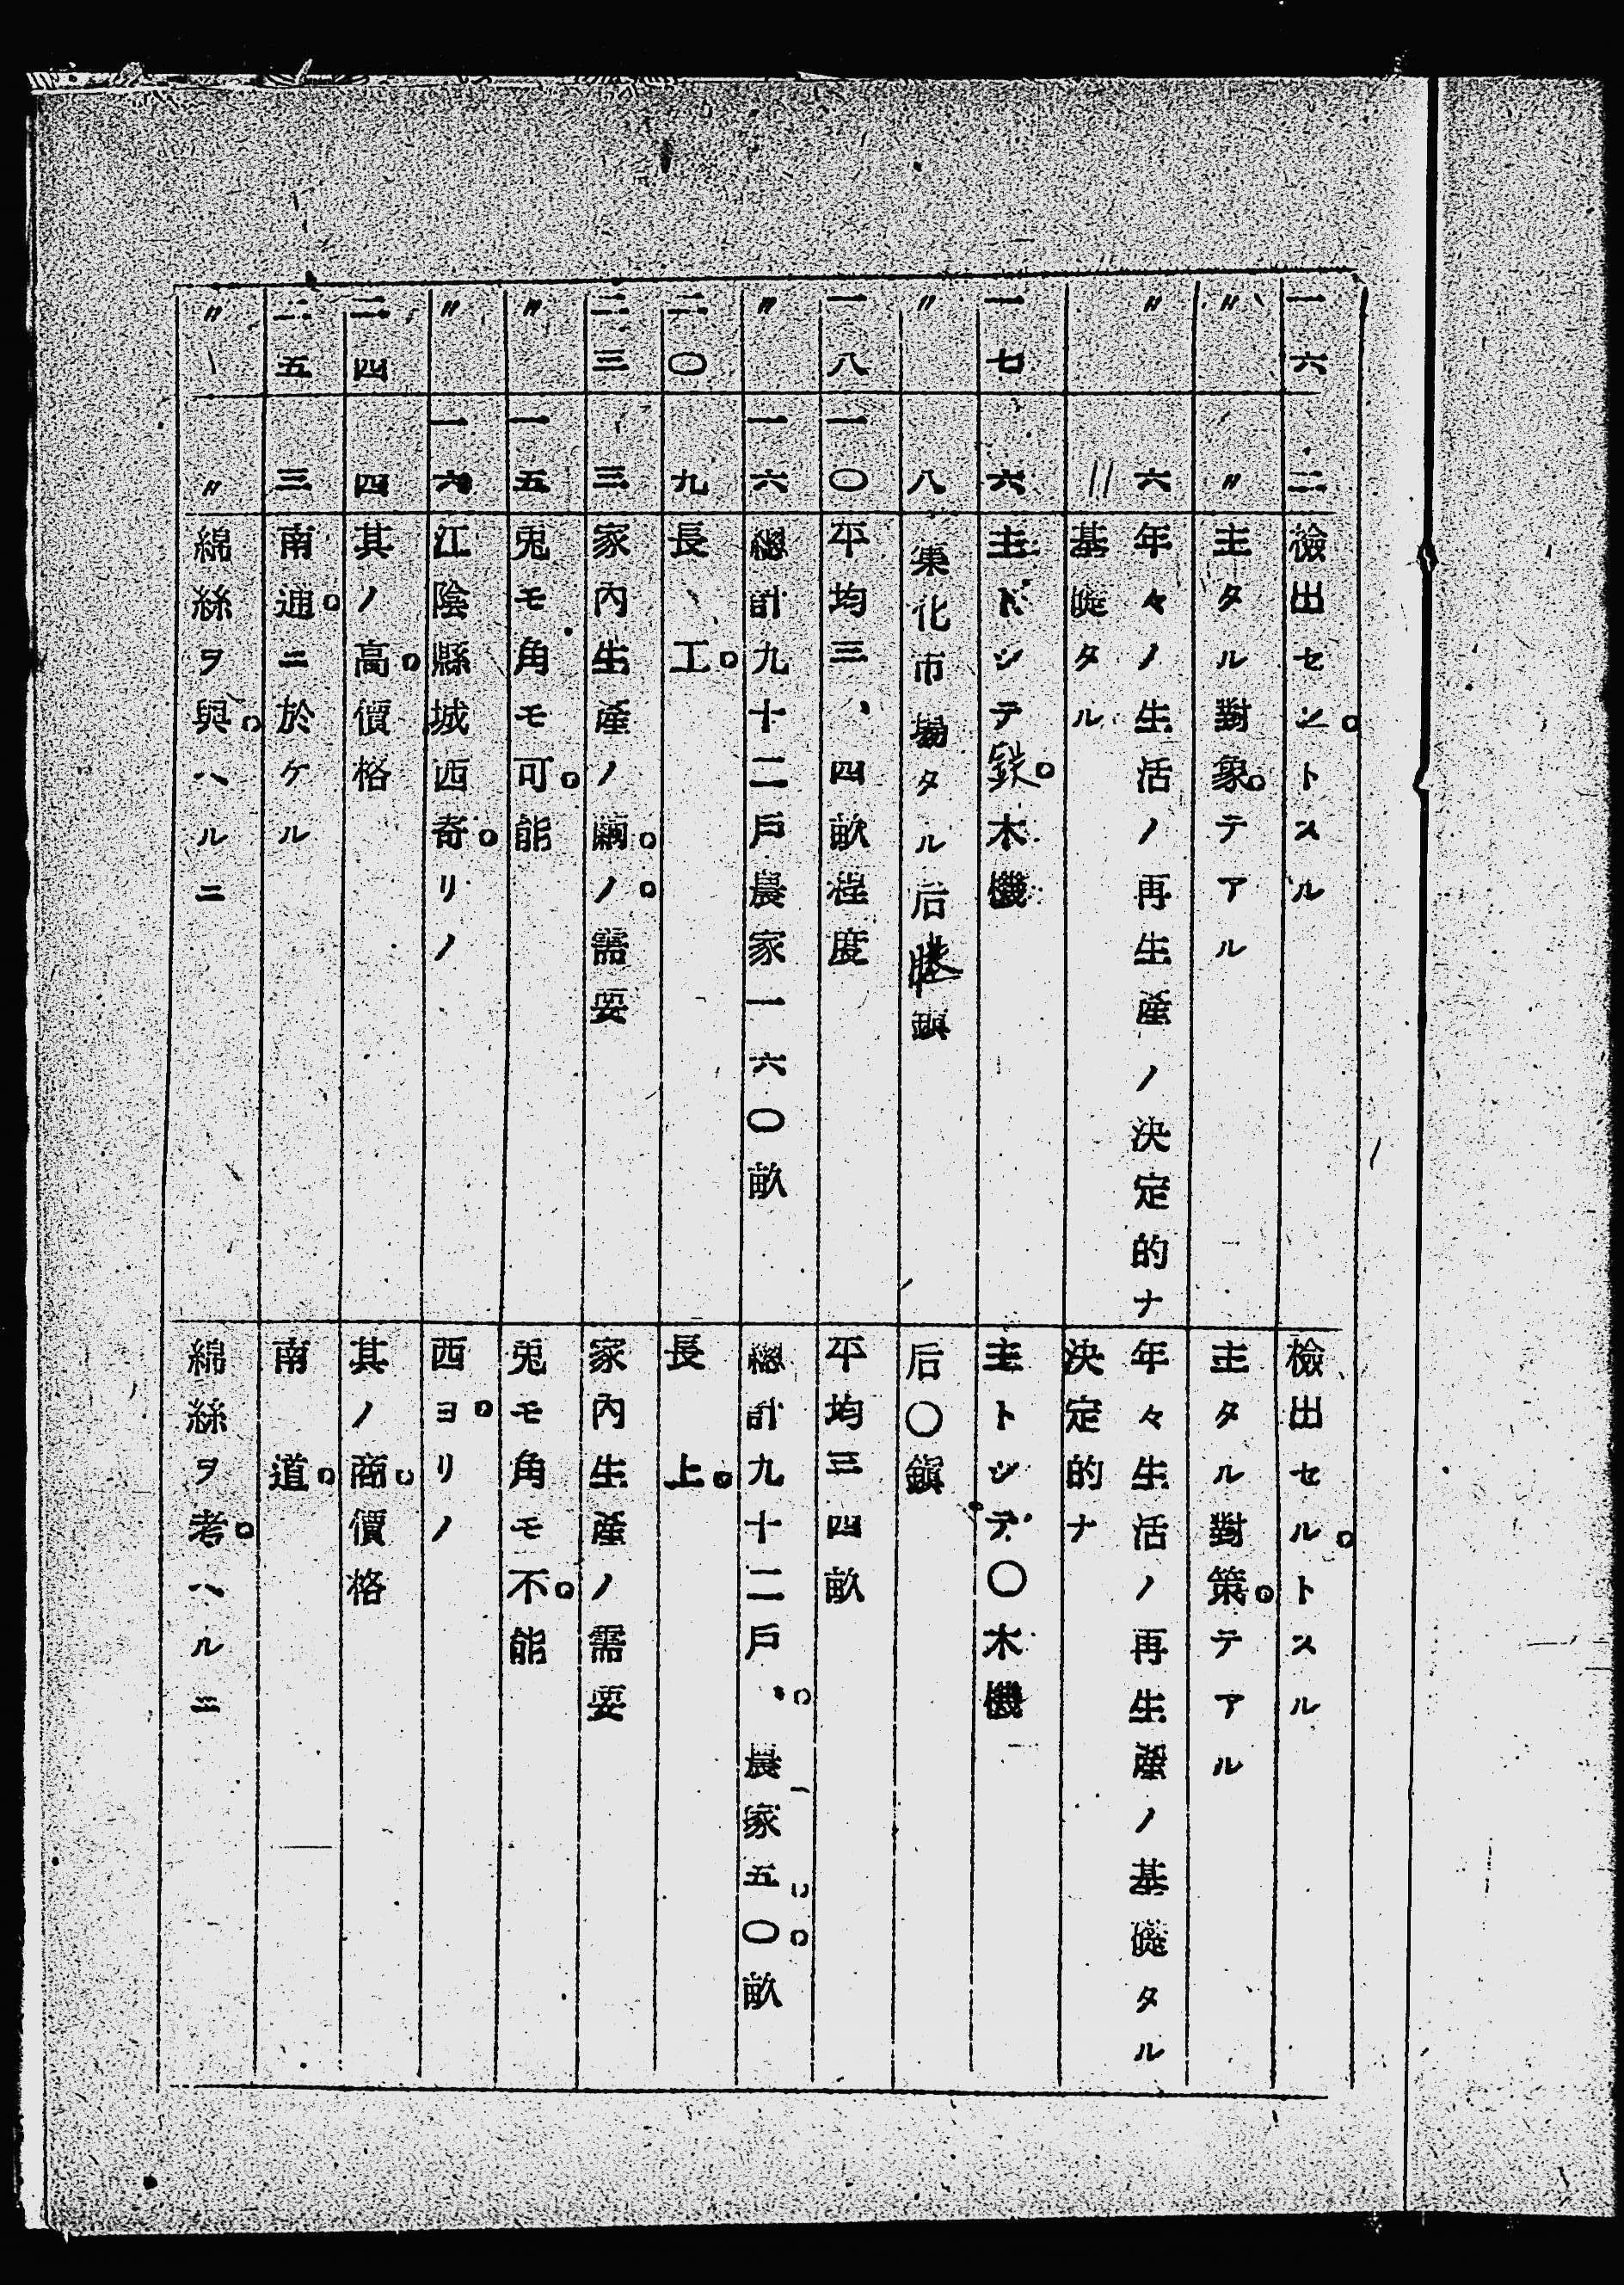 一六 二 檢出セントスル 檢出セルトスル
〃 〃 主タル對象テアル 主タル對策テアル
〃 六 年々ノ生活ノ再生產ノ決定的ナ 年々生活ノ再生產ノ基礎タル
〃 基礎タル 決定的ナ
一七 六 主トシテ鉄木機 主トシテ〇木機
〃 八 集化市場タル后塍鎭 后〇鎭
一八 一〇 平均三、四畝程度 平均三四畝
〃 一六 總計九十二戶農家一六〇畝 總計九十二戶、農家五〇畝
二〇 九 長、工 長 上
二三 三 家內生產ノ綿ノ需要 家內生產ノ需要
〃 一五 兎モ角モ可能 兎モ角モ不能
〃 一六 江陰縣城西奇リノ 西ヨリノ
二四 四 其ノ高價格 其ノ商價格
二五 三 南通ニ於ケル 南道
〃 〃 綿絲ヲ與ハルニ 綿絲ヲ考ヘルニ